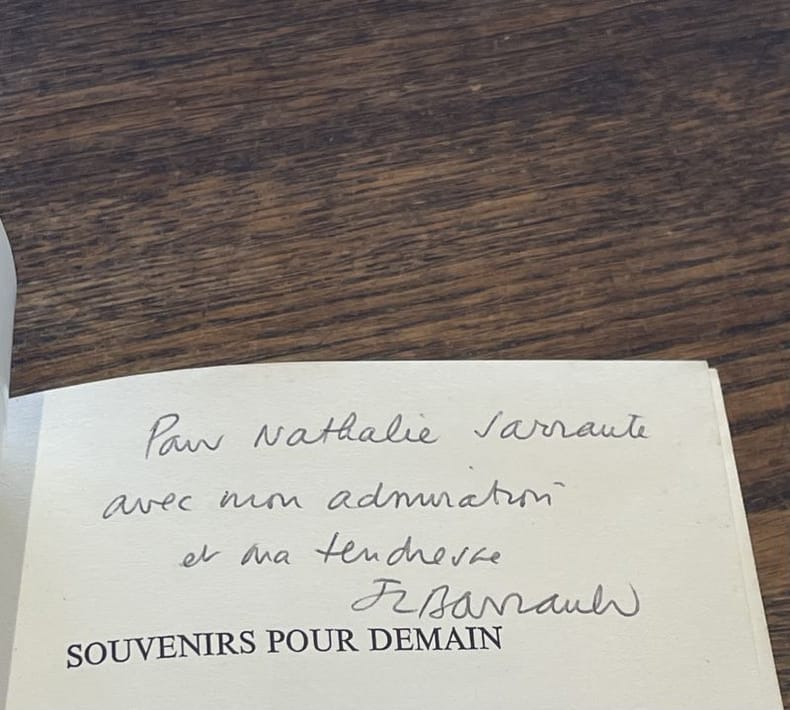 Pour Nathalie Sarraute
avec mon admiration
et ma tendresse
JLBarrault
SOUVENIRS POUR DEMAIN